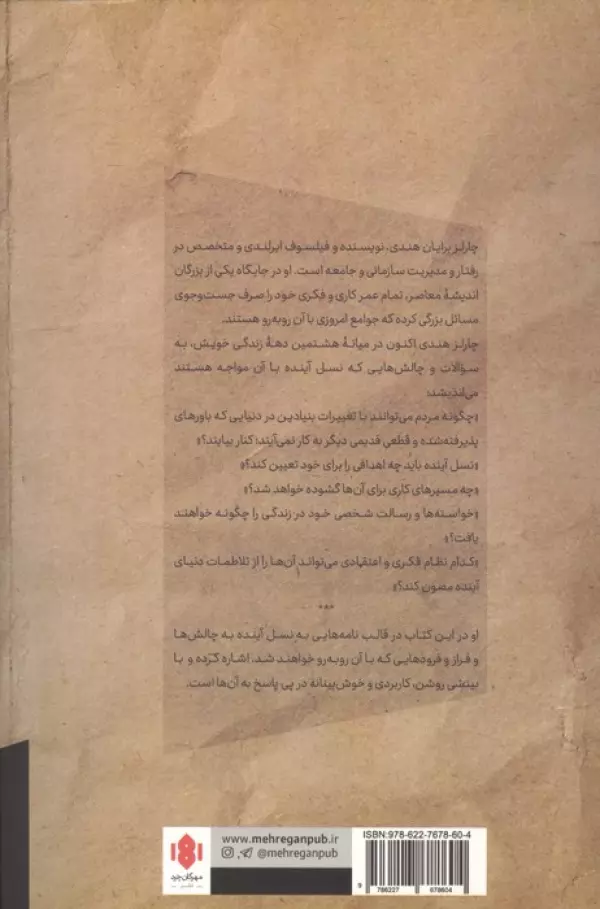 چارلز برایان هندی، نویسنده و فیلسوف ایرلندی و متخصص در
رفتار و مدیریت سازمانی و جامعه است. او در جایگاه یکی از بزرگان
اندیشهٔ معاصر، تمام عمر کاری و فکری خود را صرف جست‌وجوی
مسائل بزرگی کرده که جوامع امروزی با آن روبه‌رو هستند.
چارلز هندی اکنون در میانهٔ هشتمین دههٔ زندگی خویش، به
سؤالات و چالش‌هایی که نسل آینده با آن مواجه هستند
می‌اندیشد:
«چگونه مردم می‌توانند با تغییرات بنیادین در دنیایی که باورهای
پذیرفته‌شده و قطعی قدیمی دیگر به کار نمی‌آیند؛ کنار بیایند؟»
«نسل آینده باید چه اهدافی را برای خود تعیین کند؟»
«چه مسیرهای کاری برای آن‌ها گشوده خواهد شد؟»
«خواسته‌ها و رسالت شخصی خود در زندگی را چگونه خواهند
یافت؟»
«کدام نظام فکری و اعتقادی می‌تواند آن‌ها را از تلاطمات دنیای
آینده مصون کند؟»
***
او در این کتاب در قالب نامه‌هایی به نسل آینده به چالش‌ها
و فراز و فرودهایی که با آن روبه‌رو خواهند شد، اشاره کرده و با
بینشی روشن، کاربردی و خوش‌بینانه در پی پاسخ به آن‌ها است.
مهرگان خرد
www.mehreganpub.ir
@mehreganpub
ISBN:978-622-7678-60-4
9 786227 678604